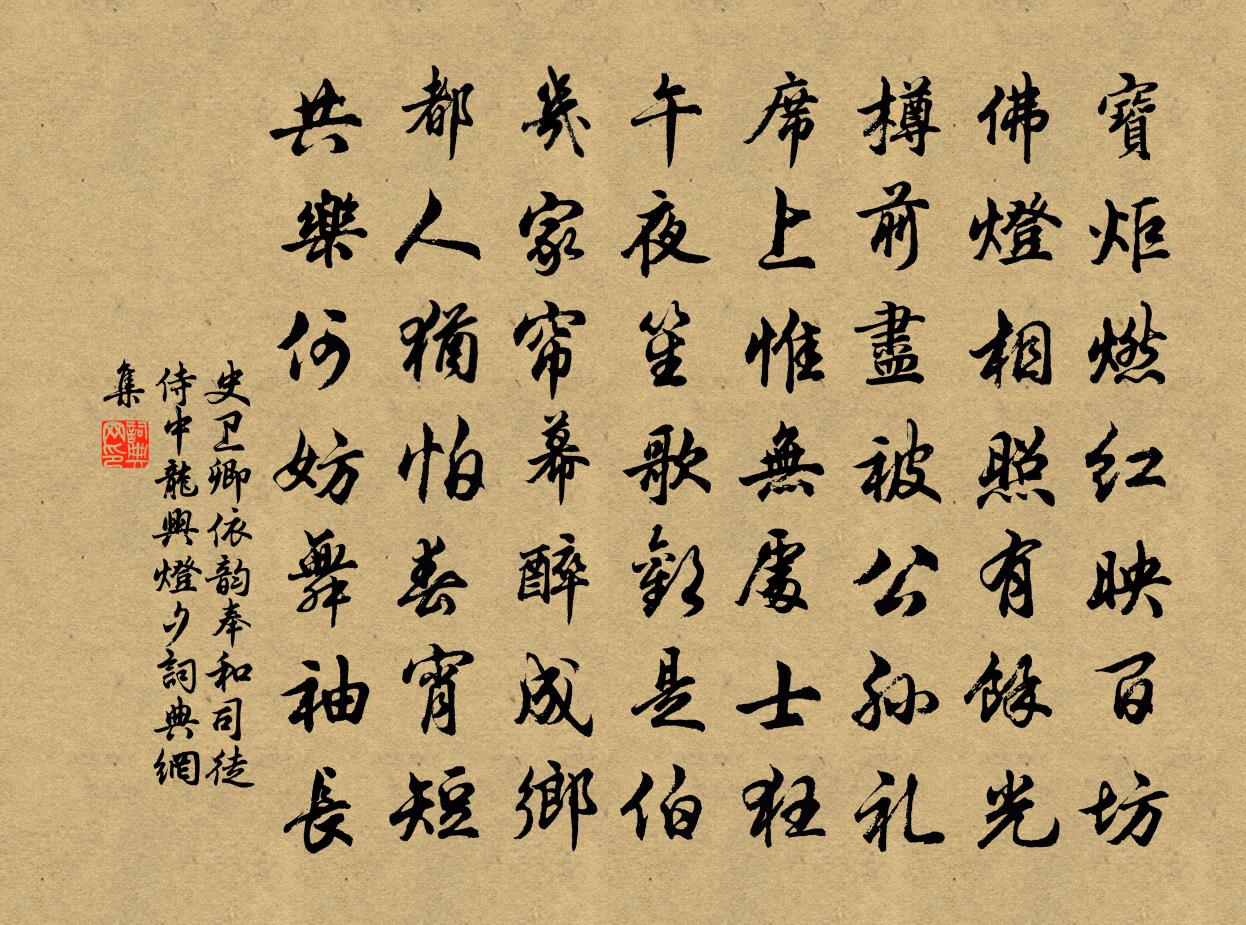 寶炬燃红映百坊
佛燈相照有餘光
樽前盡被公孫礼
席上惟無處士狂
午夜笙歌歡是伯
幾家帘幕醉成鄉
都人猶怕春宵短
共樂何妨舞袖長
史卫卿依韵奉和司徒
侍中龍興燈夕詞典網
集
詞典网印